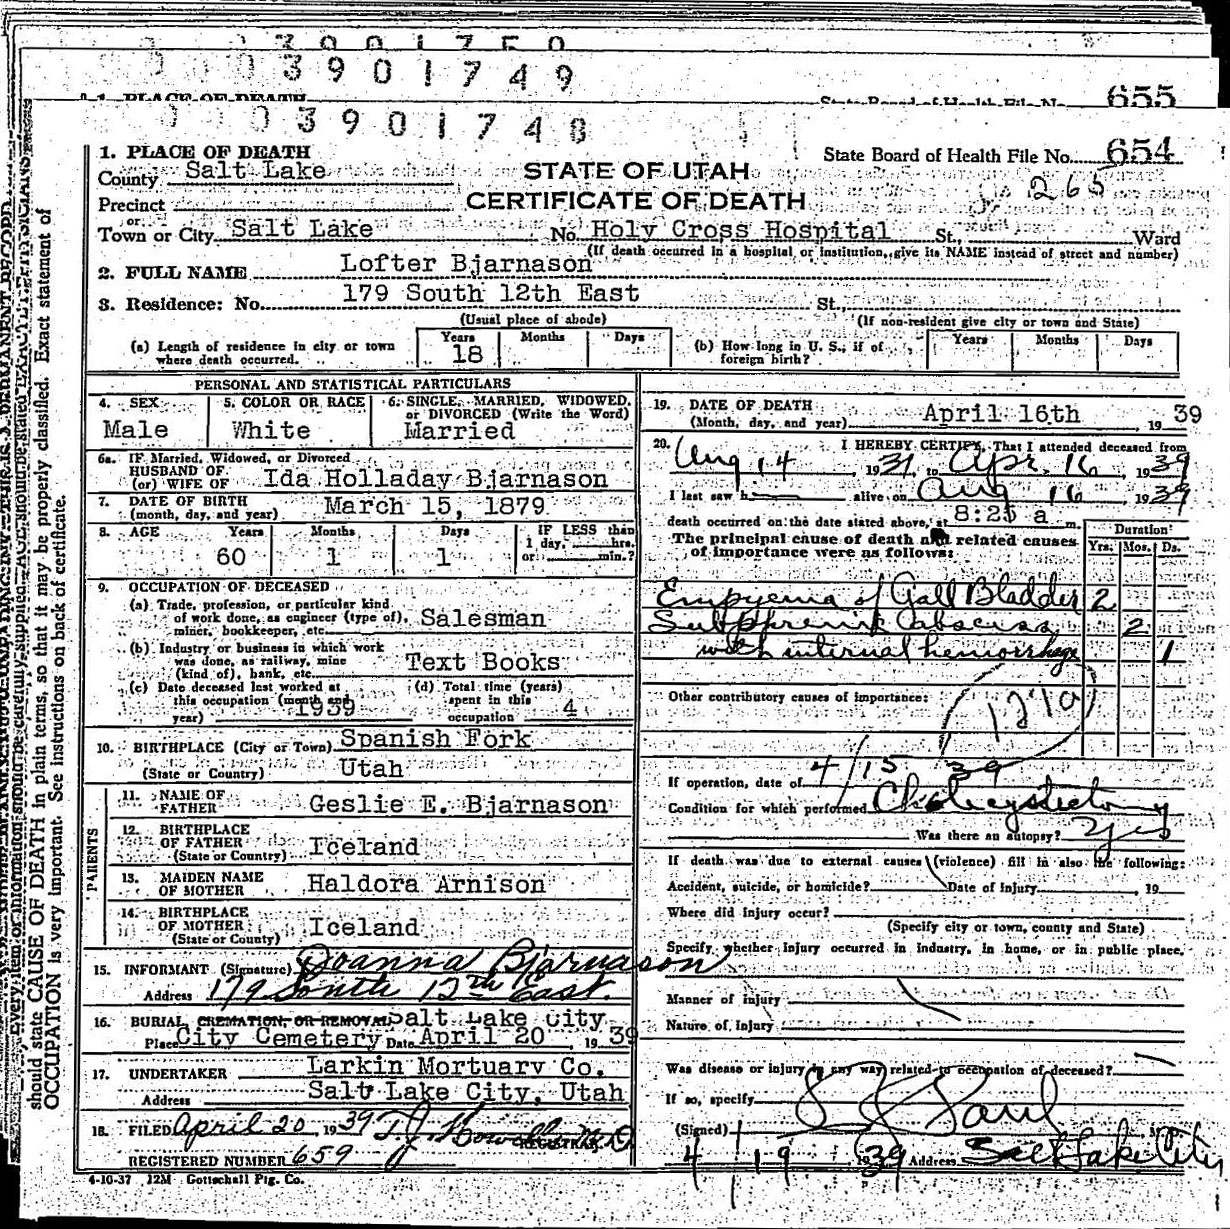 3901750
3901749
1. PLACE OF DEATH
State Board of Health File No. 655
3901748
1. PLACE OF DEATH
State Board of Health File No. 654
County Salt Lake
STATE OF UTAH
265
Precinct
CERTIFICATE OF DEATH
or
Town or City Salt Lake No. Holy Cross Hospital St., Ward
(If death occurred in a hospital or institution, give its NAME instead of street and number)
2. FULL NAME Lofter Bjarnason
3. Residence: No. 179 South 12th East St.
(Usual place of abode) (If non-resident give city or town and State)
(a) Length of residence in city or town where death occurred. Years 18 Months Days
(b) How long in U. S., if of foreign birth? Years Months Days
PERSONAL AND STATISTICAL PARTICULARS
4. SEX Male
5. COLOR OR RACE White
6. SINGLE, MARRIED, WIDOWED, or DIVORCED (Write the Word) Married
6a. IF Married, Widowed, or Divorced
HUSBAND OF
(or) WIFE OF Ida Holladay Bjarnason
7. DATE OF BIRTH
(month, day, and year) March 15, 1879
8. AGE Years 60 Months 1 Days 1 IF LESS than 1 day, hrs. or min.?
9. OCCUPATION OF DECEASED
(a) Trade, profession, or particular kind
of work done, as engineer (type of),
miner, bookkeeper, etc. Salesman
(b) Industry or business in which work
was done, as railway, mine
(kind of), bank, etc. Text Books
(c) Date deceased last worked at
this occupation (month and
year) 1939
(d) Total time (years)
spent in this
occupation 4
10. BIRTHPLACE (City or Town) Spanish Fork
(State or Country) Utah
PARENTS
11. NAME OF
FATHER Geslie E. Bjarnason
12. BIRTHPLACE
OF FATHER
(State or Country) Iceland
13. MAIDEN NAME
OF MOTHER Haldora Arnison
14. BIRTHPLACE
OF MOTHER
(State or Country) Iceland
15. INFORMANT (Signature) Joanna Bjarnason
Address 179 South 12th East.
16. BURIAL, CREMATION, OR REMOVAL Salt Lake City
Place City Cemetery Date April 20 1939
17. UNDERTAKER Larkin Mortuary Co.
Address Salt Lake City, Utah
18. FILED April 20 1939 T.J. Howells M.D.
REGISTRAR
REGISTERED NUMBER 659
4-10-37 12M Gottschall Ptg. Co.
19. DATE OF DEATH
(Month, day, and year) April 16th 1939
20. I HEREBY CERTIFY, That I attended deceased from
Aug 14, 1931, to Apr. 16, 1939
I last saw h alive on Aug 16 1939
death occurred on the date stated above, at 8:25 a m.
The principal cause of death and related causes
of importance were as follows:
Duration
Yrs. Mos. Ds.
Empyema of Gall Bladder 2
Subphrenic abscess 2
with internal hemorrhage 1
Other contributory causes of importance:
127a
If operation, date of 4/15 39
Condition for which performed Cholecystectomy
Was there an autopsy? Yes
If death was due to external causes (violence) fill in also the following:
Accident, suicide, or homicide? Date of injury , 19
Where did injury occur?
(Specify city or town, county and State)
Specify whether injury occurred in industry, in home, or in public place.
Manner of injury
Nature of injury
Was disease or injury in any way related to occupation of deceased?
If so, specify
(Signed) S J Paul
4/19 1939 Address Salt Lake City
should state CAUSE OF DEATH in plain terms, so that it may be properly classified. Exact statement of
OCCUPATION is very important. See instructions on back of certificate.